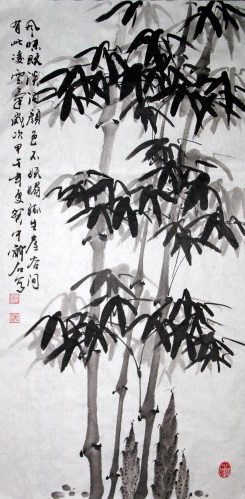 風味既淡泊顏色不妩媚孤生崖谷间
有此凌雲氣歲次甲午年夏石写